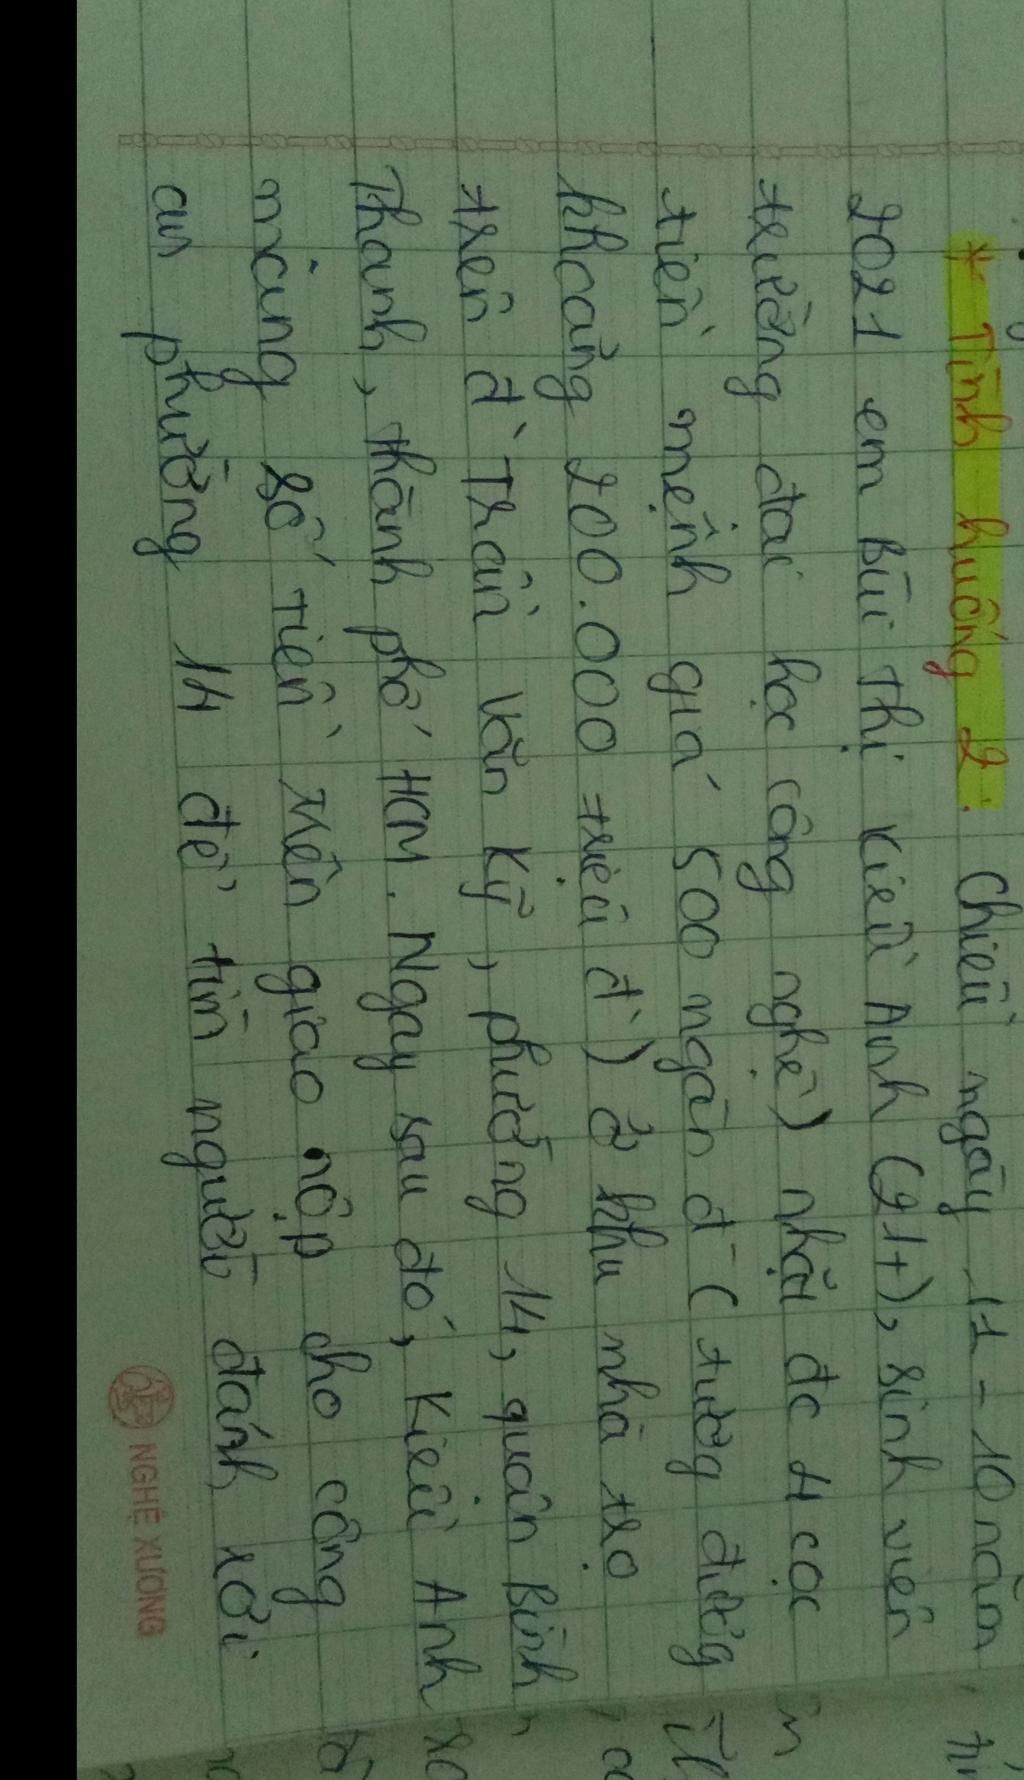 * Tình huống 2: Chiều ngày 12-10 năm
2021 em Bùi Thị Kiều Anh (21t), sinh viên
trường đại học công nghệ) nhặt đc 4 cọc
tiền mệnh giá 500 ngàn đ (tương đương
khoảng 200.000 triệu đ) ở khu nhà trọ
trên đ` Trần Văn Kỹ, phường 14, quận Bình
Thạnh, thành phố HCM. Ngay sau đó, Kiều Anh
mang số tiền trên giao nộp cho công
an phường 14 để tìm người đánh rơi
NGHỆ XƯƠNG